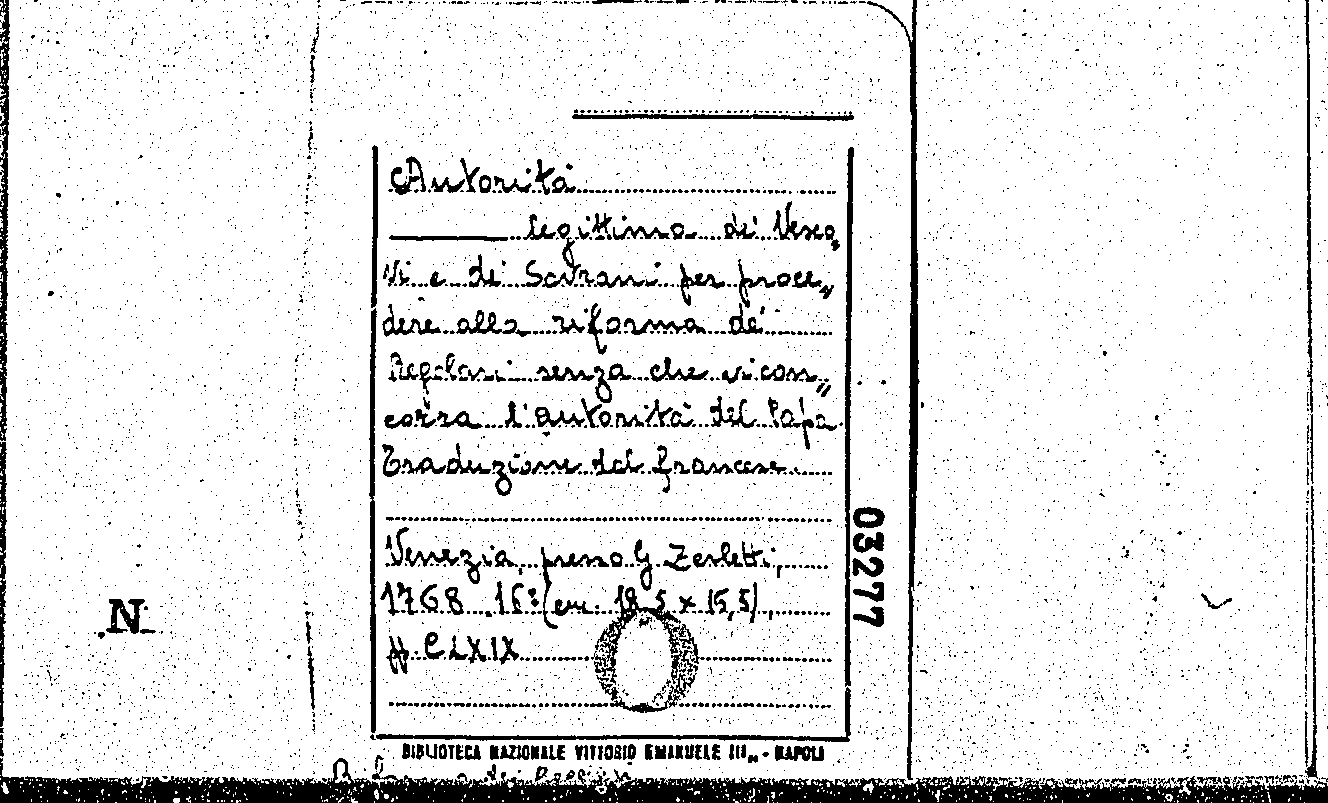 Autorità
legittima dei Vesco„
vi e dei Sovrani per proce„
dere alla riforma de'
Regolari senza che vi con„
corza l'autorità del Papa
Traduzione dal francese.
Venezia, presso G. Zerletti,
1768 16º (cm. 18,5 x 15,5),
ff. CLXIX
03277
.N.
BIBLIOTECA NAZIONALE VITTORIO EMANUELE III„ - NAPOLI
dei